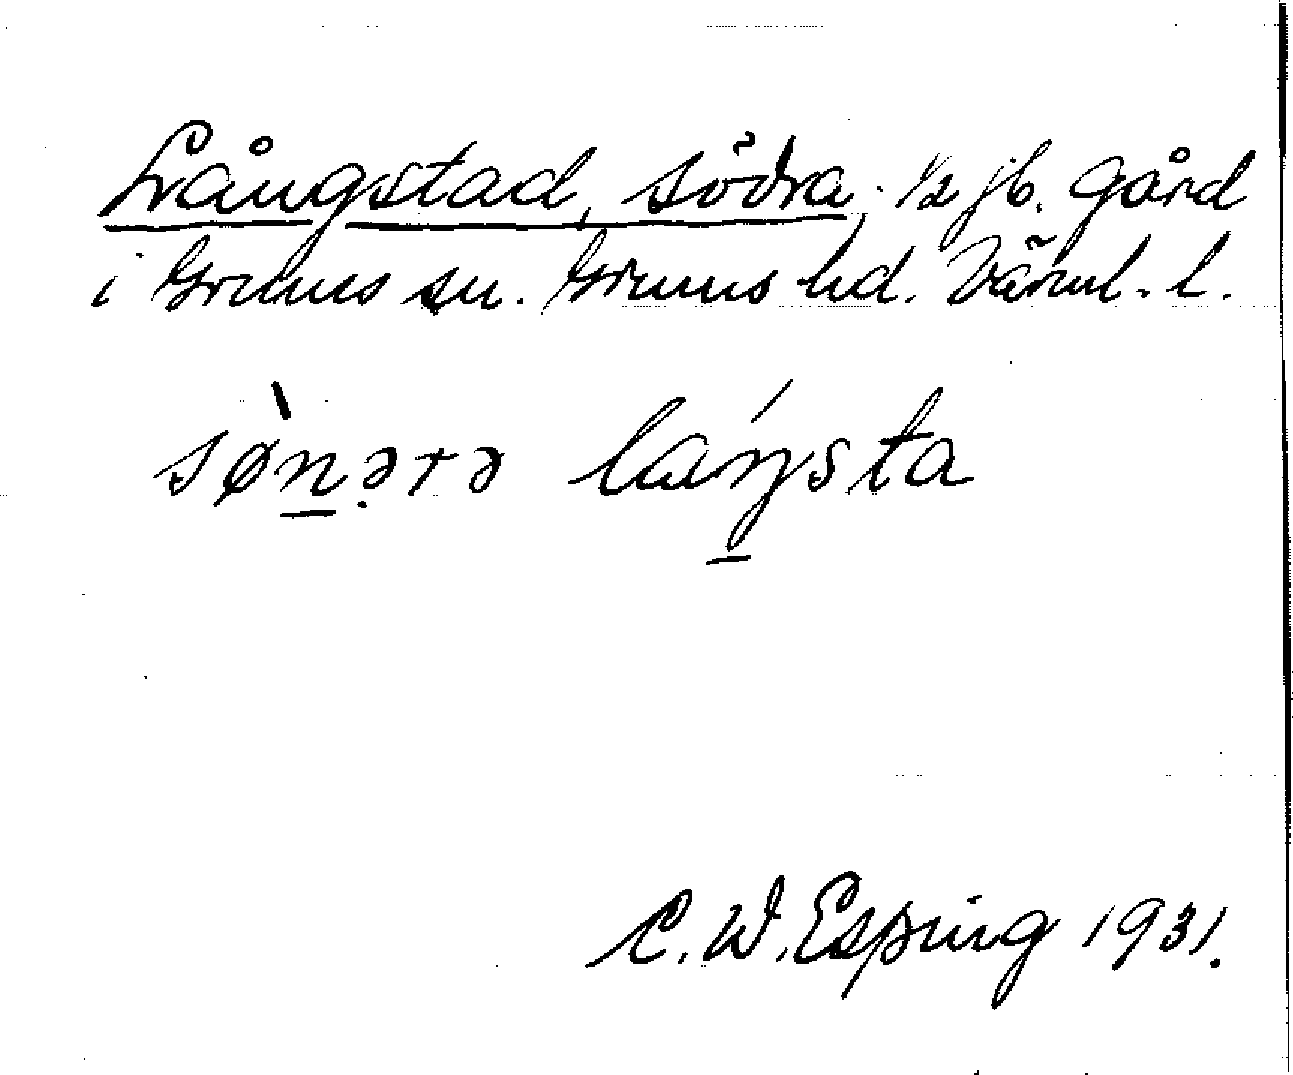 Långstad, södra, 1/2 jb. gård
i Grums sn. Grums hd. Värml. l.
sø̀nərə laŋ́sta
C. W. Esping 1931.